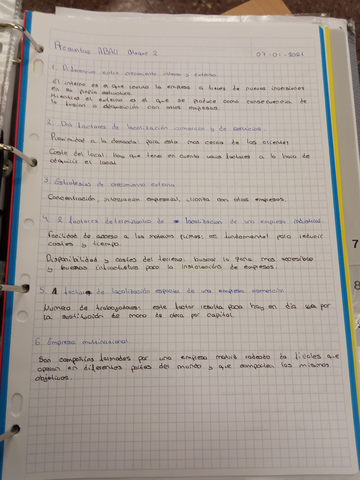 Preguntas ABAU Bloque 2 07-01-2021
1. Diferencias entre crecimiento interno y externo.
El interno es el que realiza la empresa a través de nuevas inversiones
en su propia estructura.
Mientras el externo es el que se produce como consecuencia de
la fusión o adquisición con otras empresas.
2. Dos factores de localización comercial y de servicios.
Proximidad a la demanda: para estar mas cerca de los clientes
Coste del local: hay que tener en cuenta varios factores a la hora de
adquirir el local
3. Estrategias de crecimiento externo
Concentración, integración empresarial, alianza con otras empresas.
4. 2 factores determinantes de localización de una empresa industrial.
Facilidad de acceso a las materias primas: es fundamental para reducir
costes y tiempo.
Disponibilidad y costes del terreno: buscar la zona mas accesible
y buenos para la de empresas.
5. 1 factor de localización de una empresa
Numero de trabajadores: este factor resulta poco hoy en día por
la sustitución de mano de obra por capital.
6. Empresa multinacional.
Son compañías formadas por una empresa matriz rodeada de filiales que
operan en diferentes partes del mundo y que comparten los mismos
objetivos.
7
8